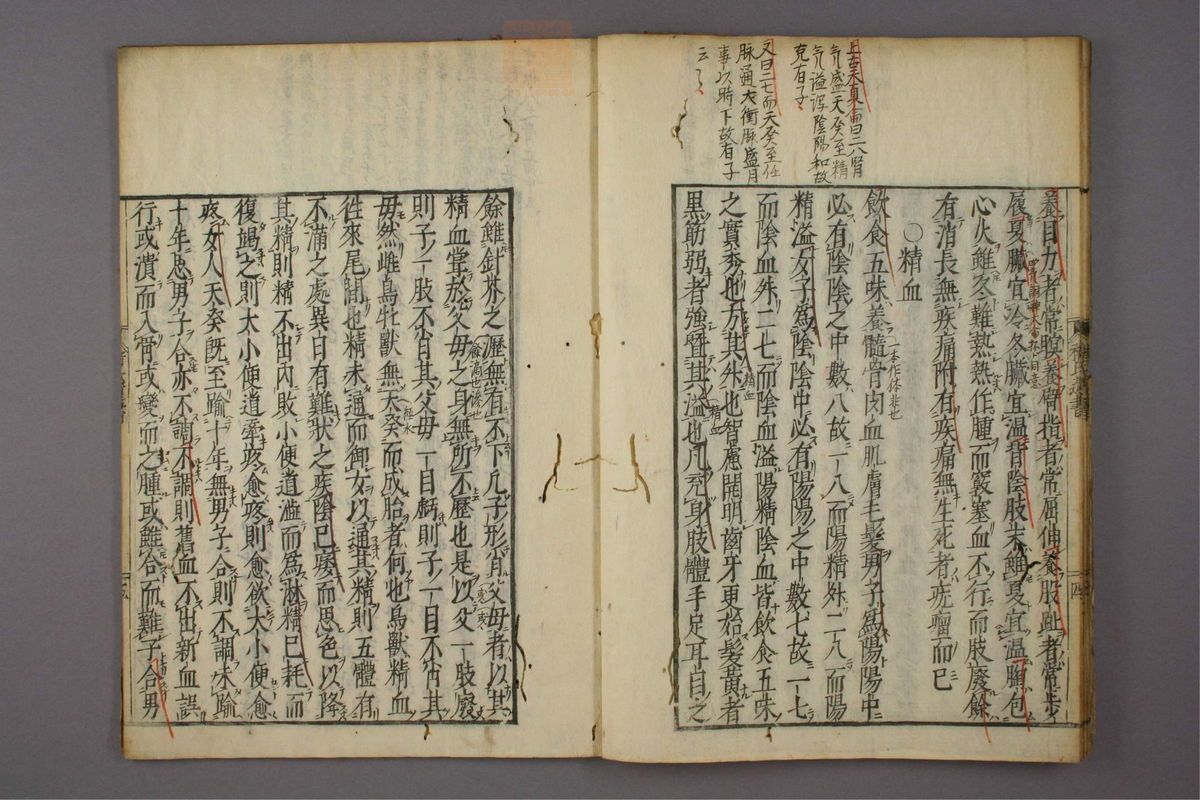 上古天真論曰二八腎
气盛天癸至精
气溢瀉陰陽和故
克有子
又曰二七而天癸至任
脉通太衝脉盛月
事以時下故有子
云々
養目力者常瞑養臂指者常屈伸養股趾者常步
履夏臟宜冷冬臟宜温背陰肢末雖夏宜温胸包
心火雖冬難熱熱作腫而竅塞血不行而肢廢餘
有消長無疾痛附有疾痛無生死者疣瘤而已
○精血
飲食五味養髓骨肉血肌膚毛髮男子爲陽陽中
一本作体非也
必有陰陰之中數八故一八而陽精升二八而陽
精溢女子爲陰陰中必有陽陽之中數七故一七
而陰血升二七而陰血溢陽精陰血皆飲食五味
之實秀也方其升也智慮開明齒牙更始髮黃者
精血
黑筋弱者強曁其溢也凡充身肢體手足耳目之
精血
餘雖針芥之瀝無有不下凡子形肖父母者以其
精血嘗於父母之身無所不歷也是以父一肢廢
則子一肢不肖其父母一目虧則子一目不肖其
母然雌鳥牝獸無天癸而成胎者何也鳥獸精血
経水
徃來尾閭也精未通而御女以通其精則五體有
不滿之處異日有難狀之疾陰已痿而思色以降
其精則精不出内敗小便道澁而爲淋精已耗而
復竭之則大小便道牽疼愈疼則愈欲大小便愈
疼女人天癸既至踰十年無男子合則不調未踰
十年思男子合亦不調不調則舊血不出新血誤
行或潰而入骨或變而之腫或雖合而難子合男